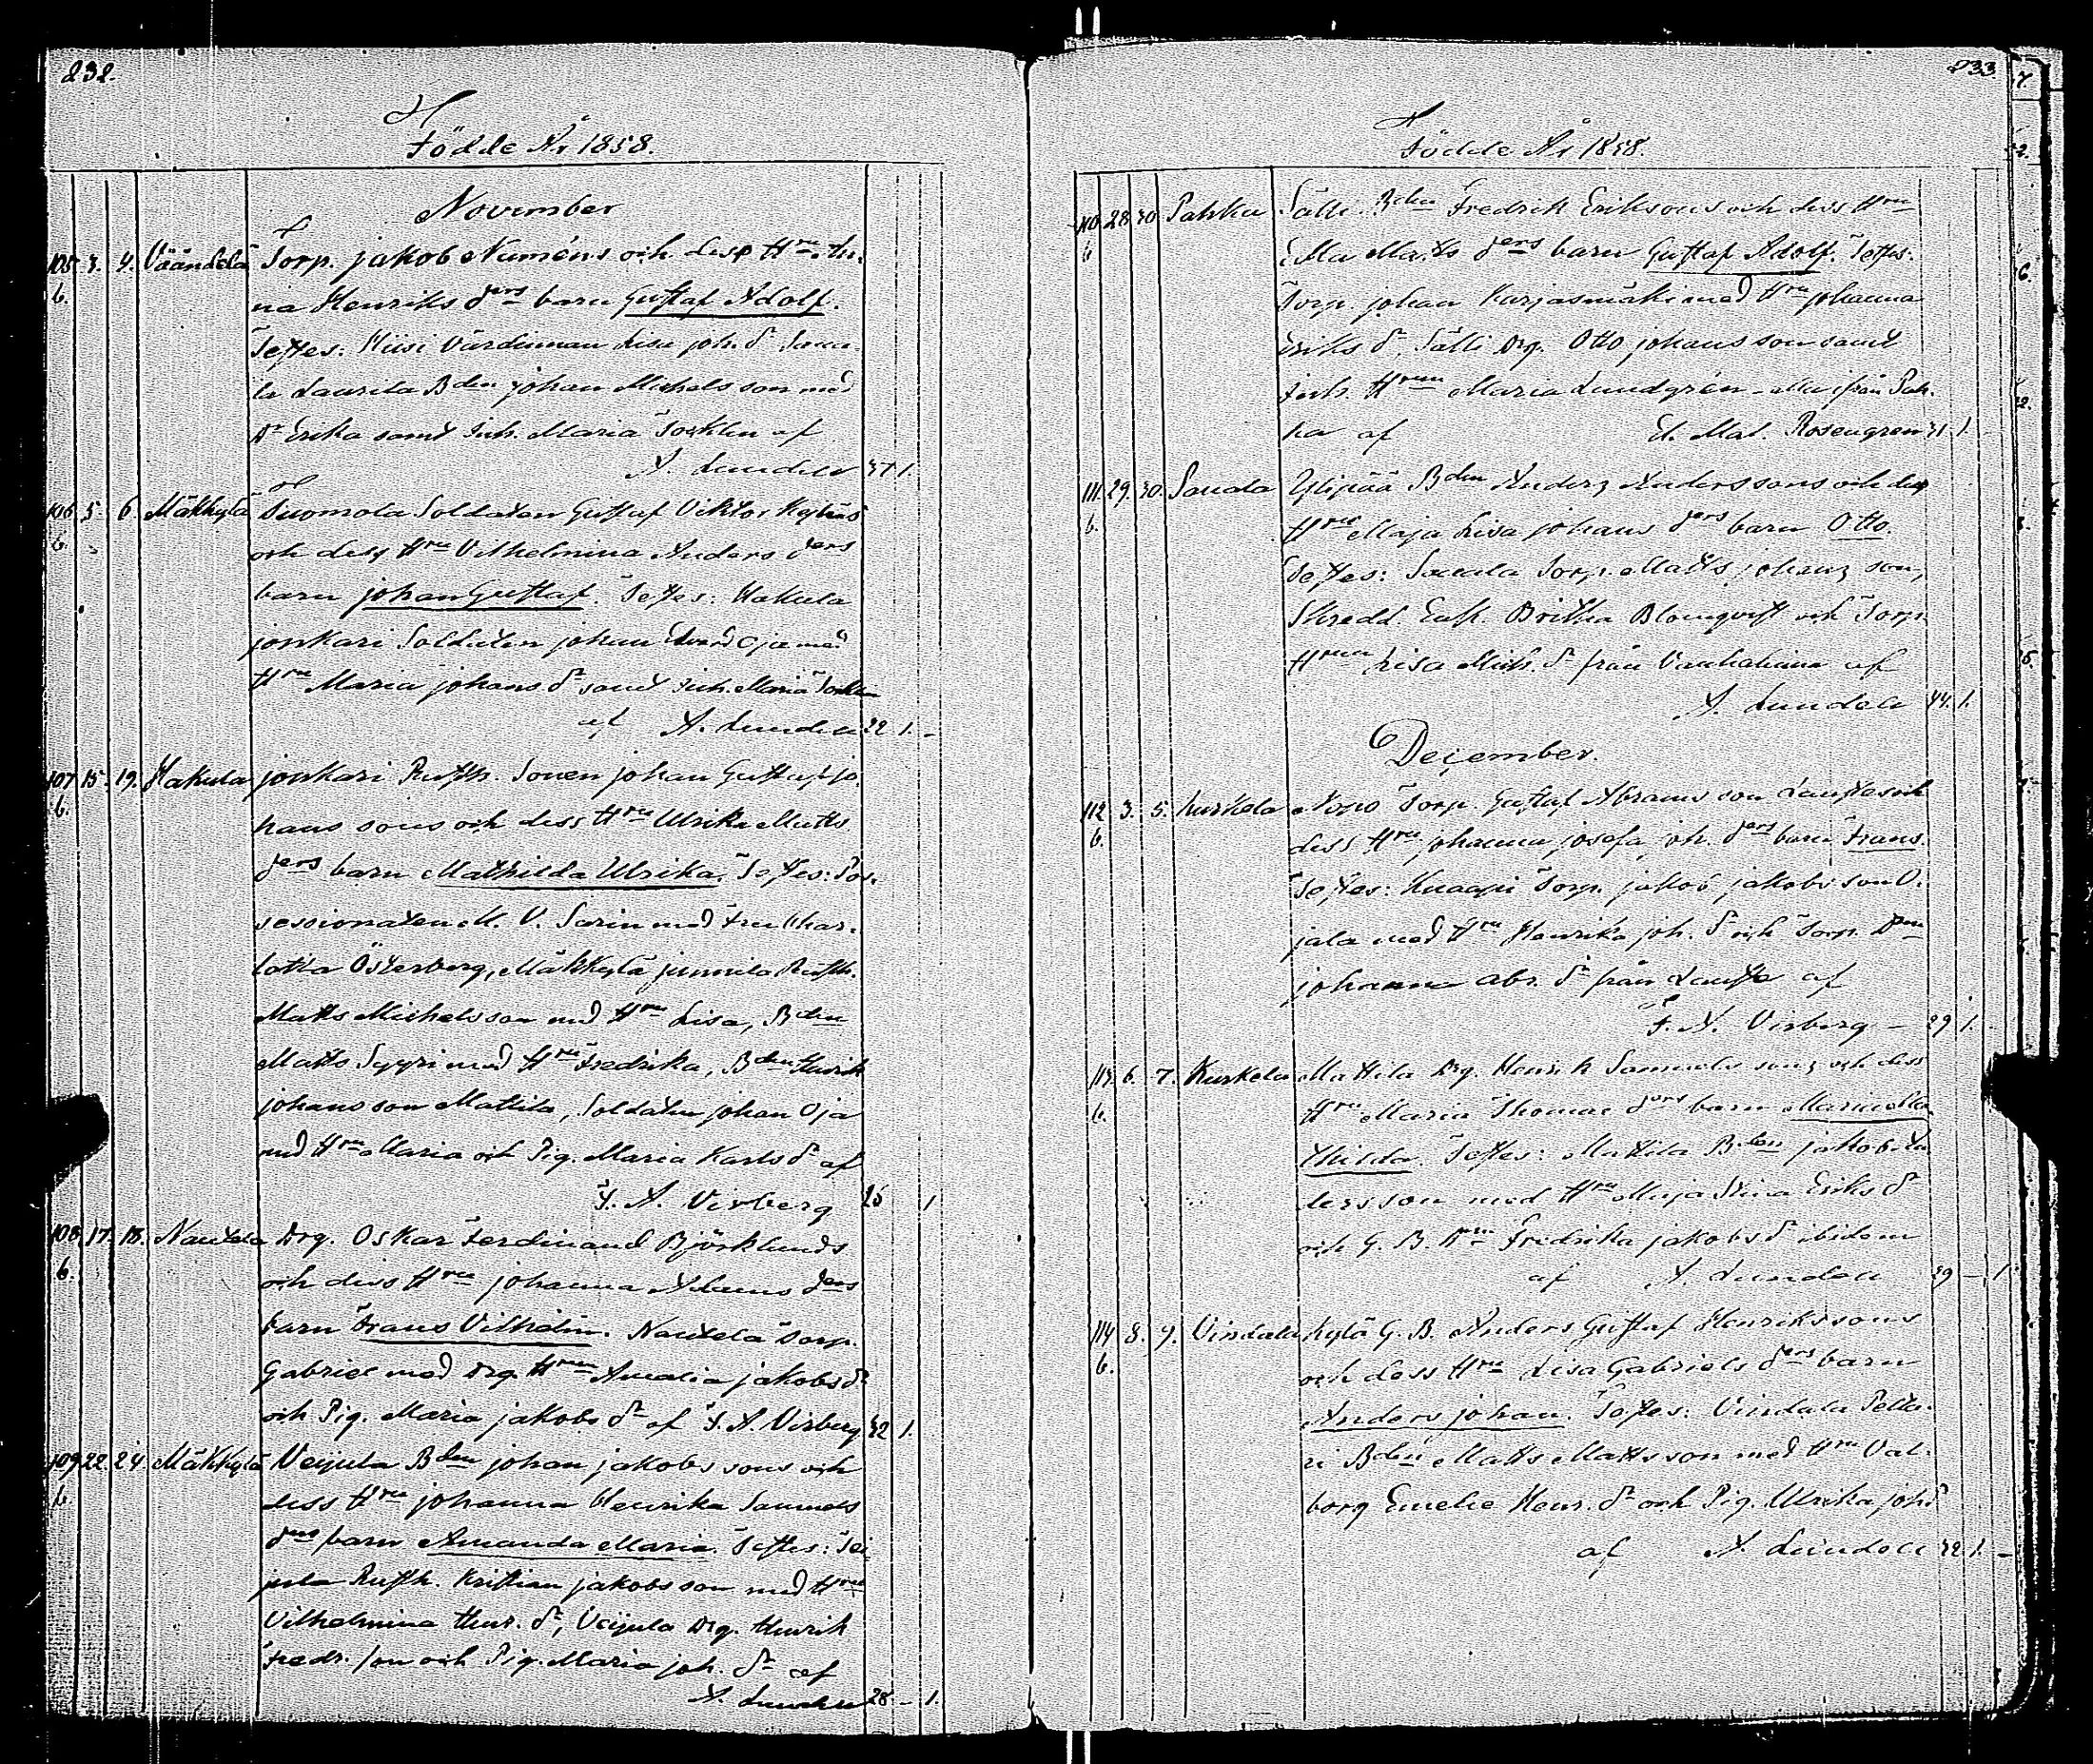 232.
Födde År 1858.
November
105 3. 4. Väändelä Torp. Jakob Numéns och dess Hru An-
b. na Henriks ders barn Gustaf Adolf.
Testes: Hiisi Värdinnan Lisa Joh. dr Saua-
la Laurila Bden Johan Michels son med
Dr Erika samt Inh. Maria Tocklin af
A. Lundell 37 1.
106 5. 6. Mäkkylä Tuomola Soldaten Gustaf Viktor
b. och dess Hru Vilhelmina Anders ders
barn Johan Gustaf. Testes: Hakula
Jonkari Soldaten Johan Edvard Oja med
Hru Maria Johans dr samt Inh. Maria
af A. Lundell 22 1. -
107 15. 19. Hakula Jonkari Rusth. Sonen Johan Gustaf Jo-
b. hans sons och dess Hru Ulrika Matts
ders barn Mathilda Ulrika. Testes: Pos-
sessionaten M. V. Sarin med Fru Char-
lotta Österberg, Mäkkylä Junnila Rusth.
Matts Michelsson med Hru Lisa, Bden
Matts Syyri med Hru Fredrika, Bden Henrik
Johansson Mattila, Soldaten Johan Oja
med Hru Maria och Pig. Maria Karls dr af
F. A. Virberg 25 1
108. 17. 18. Nautela Drg. Oskar Ferdinand Björklunds
b. och dess Hru Johanna Adams ders
barn Frans Vilhelm. Nautela Torp.
Gabriel med Drg. Hrun Amalia Jakobs dr
och Pig. Maria Jakobs dr af F. A. Virberg 32 1.
109 22. 24. Mäkkylä Veijula Bden Johan Jakobs sons och
b. dess Hru Johanna Henrika Samuels
ders barn Amanda Maria. Testes: Vei-
jula Rusth. Kristian Jakobs son med Hru
Vilhelmina Henr. dr, Veijula Drg. Henrik
Fredr. son och Pig. Maria Joh. dr af
A. Lundell 28 - 1.
233
Födde År 1858.
110 28 30 Pahka Sälli Bden Fredrik Eriksons och dess Hru
b Ulla Matts ders barn Gustaf Adolf. Testes:
Torp. Johan Karjasmäki med Hru Johanna
Eriks dr, Sälli Drg. Otto Johans son samt
Inh. Hrun Maria Lundgrén - alla ifrån Pah-
ka af El. Mal. Rosengren 31 1
111. 29. 30. Sauala Ylipää Bden Anders Anderssons och dess
b. Hru Maja Lisa Johans ders barn Otto.
Testes: Sauala Torp. Matts Johans son,
Skredd. Enk. Britha Blomqvist och Torp.
Hrun Lisa Mich. dr från Vanhakana af
A. Lundell 44. 1.
December.
112 3. 5. Kurkela Nopo Torp. Gustaf Abrams son Lauste och
b. dess Hru Johanna Josefa Joh. ders barn Frans.
Testes: Knaapi Torp. Jakob Jakobs son O-
jala med Hru Henrika Joh. dr och Torp. Drn
Johanna Abr. dr från Lauste af
F. A. Virberg - 29 1. -
113. 6. 7. Kurkela Mattila Drg. Henrik Samuels sons och dess
b. Hru Maria Thomae ders barn Maria Ma-
thilda. Testes: Mattila Bden Jakob An-
ders son med Hru Maja Stina Eriks dr
och G. B. Hru Fredrika Jakobs dr ibidem
af A. Lundell 39 - 1
114 8. 9. Vindala Kylä G. B. Anders Gustaf Henrikssons
b. och dess Hru Lisa Gabriels ders barn
Anders Johan. Testes: Vindala
Bden Matts Mattsson med Hru Val-
borg Emelie Henr. dr och Pig. Ulrika Joh. dr
af A. Lundell 32. 1. -